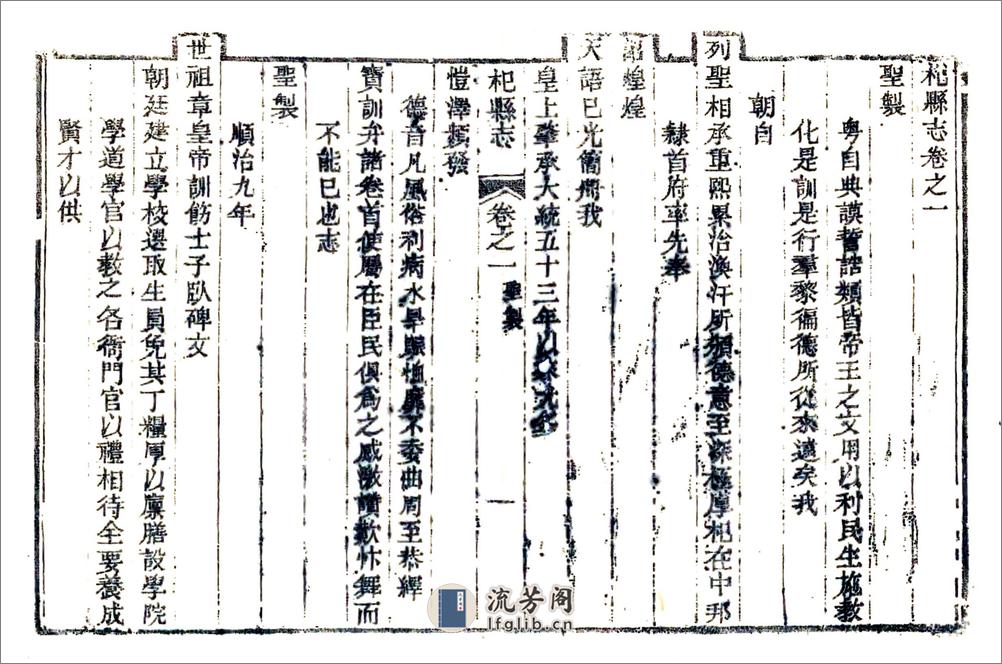 杞縣志卷之一
聖製
粤自典謨誓誥類皆帝王之文用以利民生施教
化是訓是行羣黎徧德所從來遠矣我
朝自
列聖相承重熙累洽渙汗所頒德意至深極厚杞在中邦
隸首府率先奉
煌煌
大語已光簡冊我
皇上肇承大統五十三年以來
杞縣志
卷之一
聖製
一
愷澤頻發
德音凡風俗利病水旱賑恤靡不委曲周至恭繹
寶訓弁諸卷首使屬在臣民俱為之感激讃歎忭舞而
不能已也志
聖製
順治九年
世祖章皇帝訓飭士子臥碑文
朝廷建立學校選取生員免其丁糧厚以廩膳設學院
學道學官以教之各衙門官以禮相待全要養成
賢才以供
流芳阁
lfglib.cn